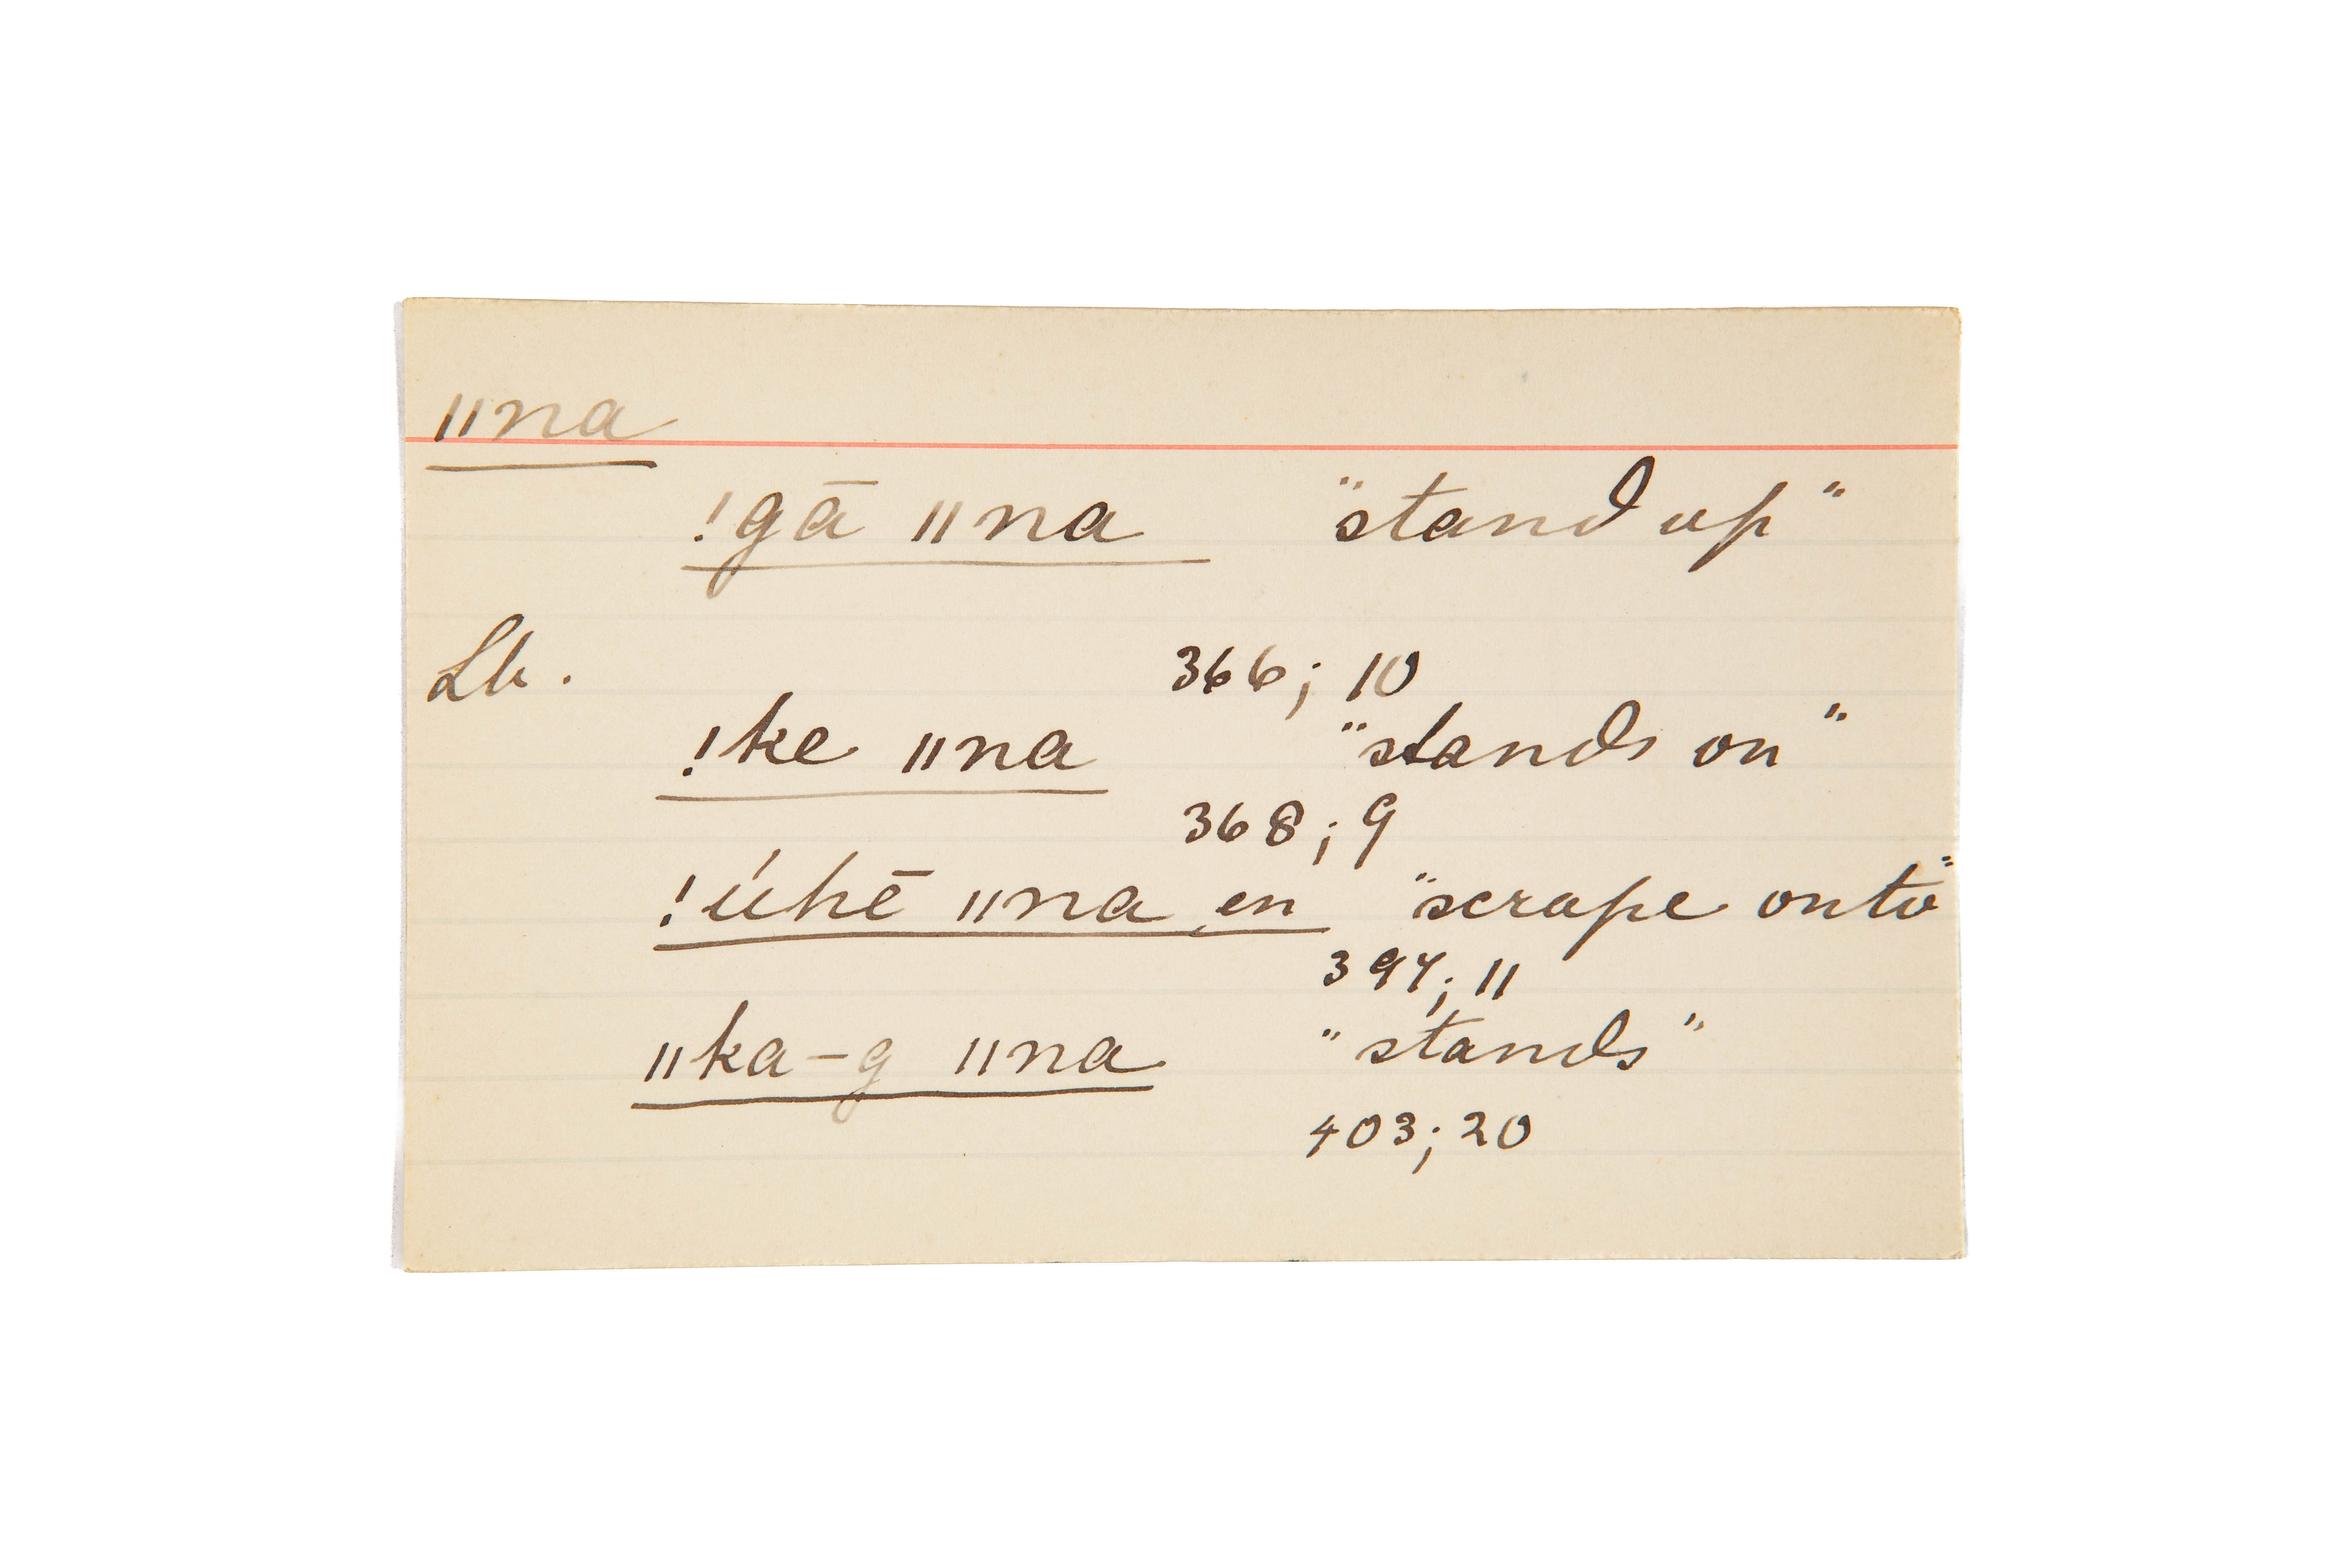 ǁna
!gā ǁna "stand up"
Lb. 366; 10
!ke ǁna "stands on"
368; 9
!úhē ǁna en "scrape onto"
397; 11
ǁka-g ǁna "stands"
403; 20